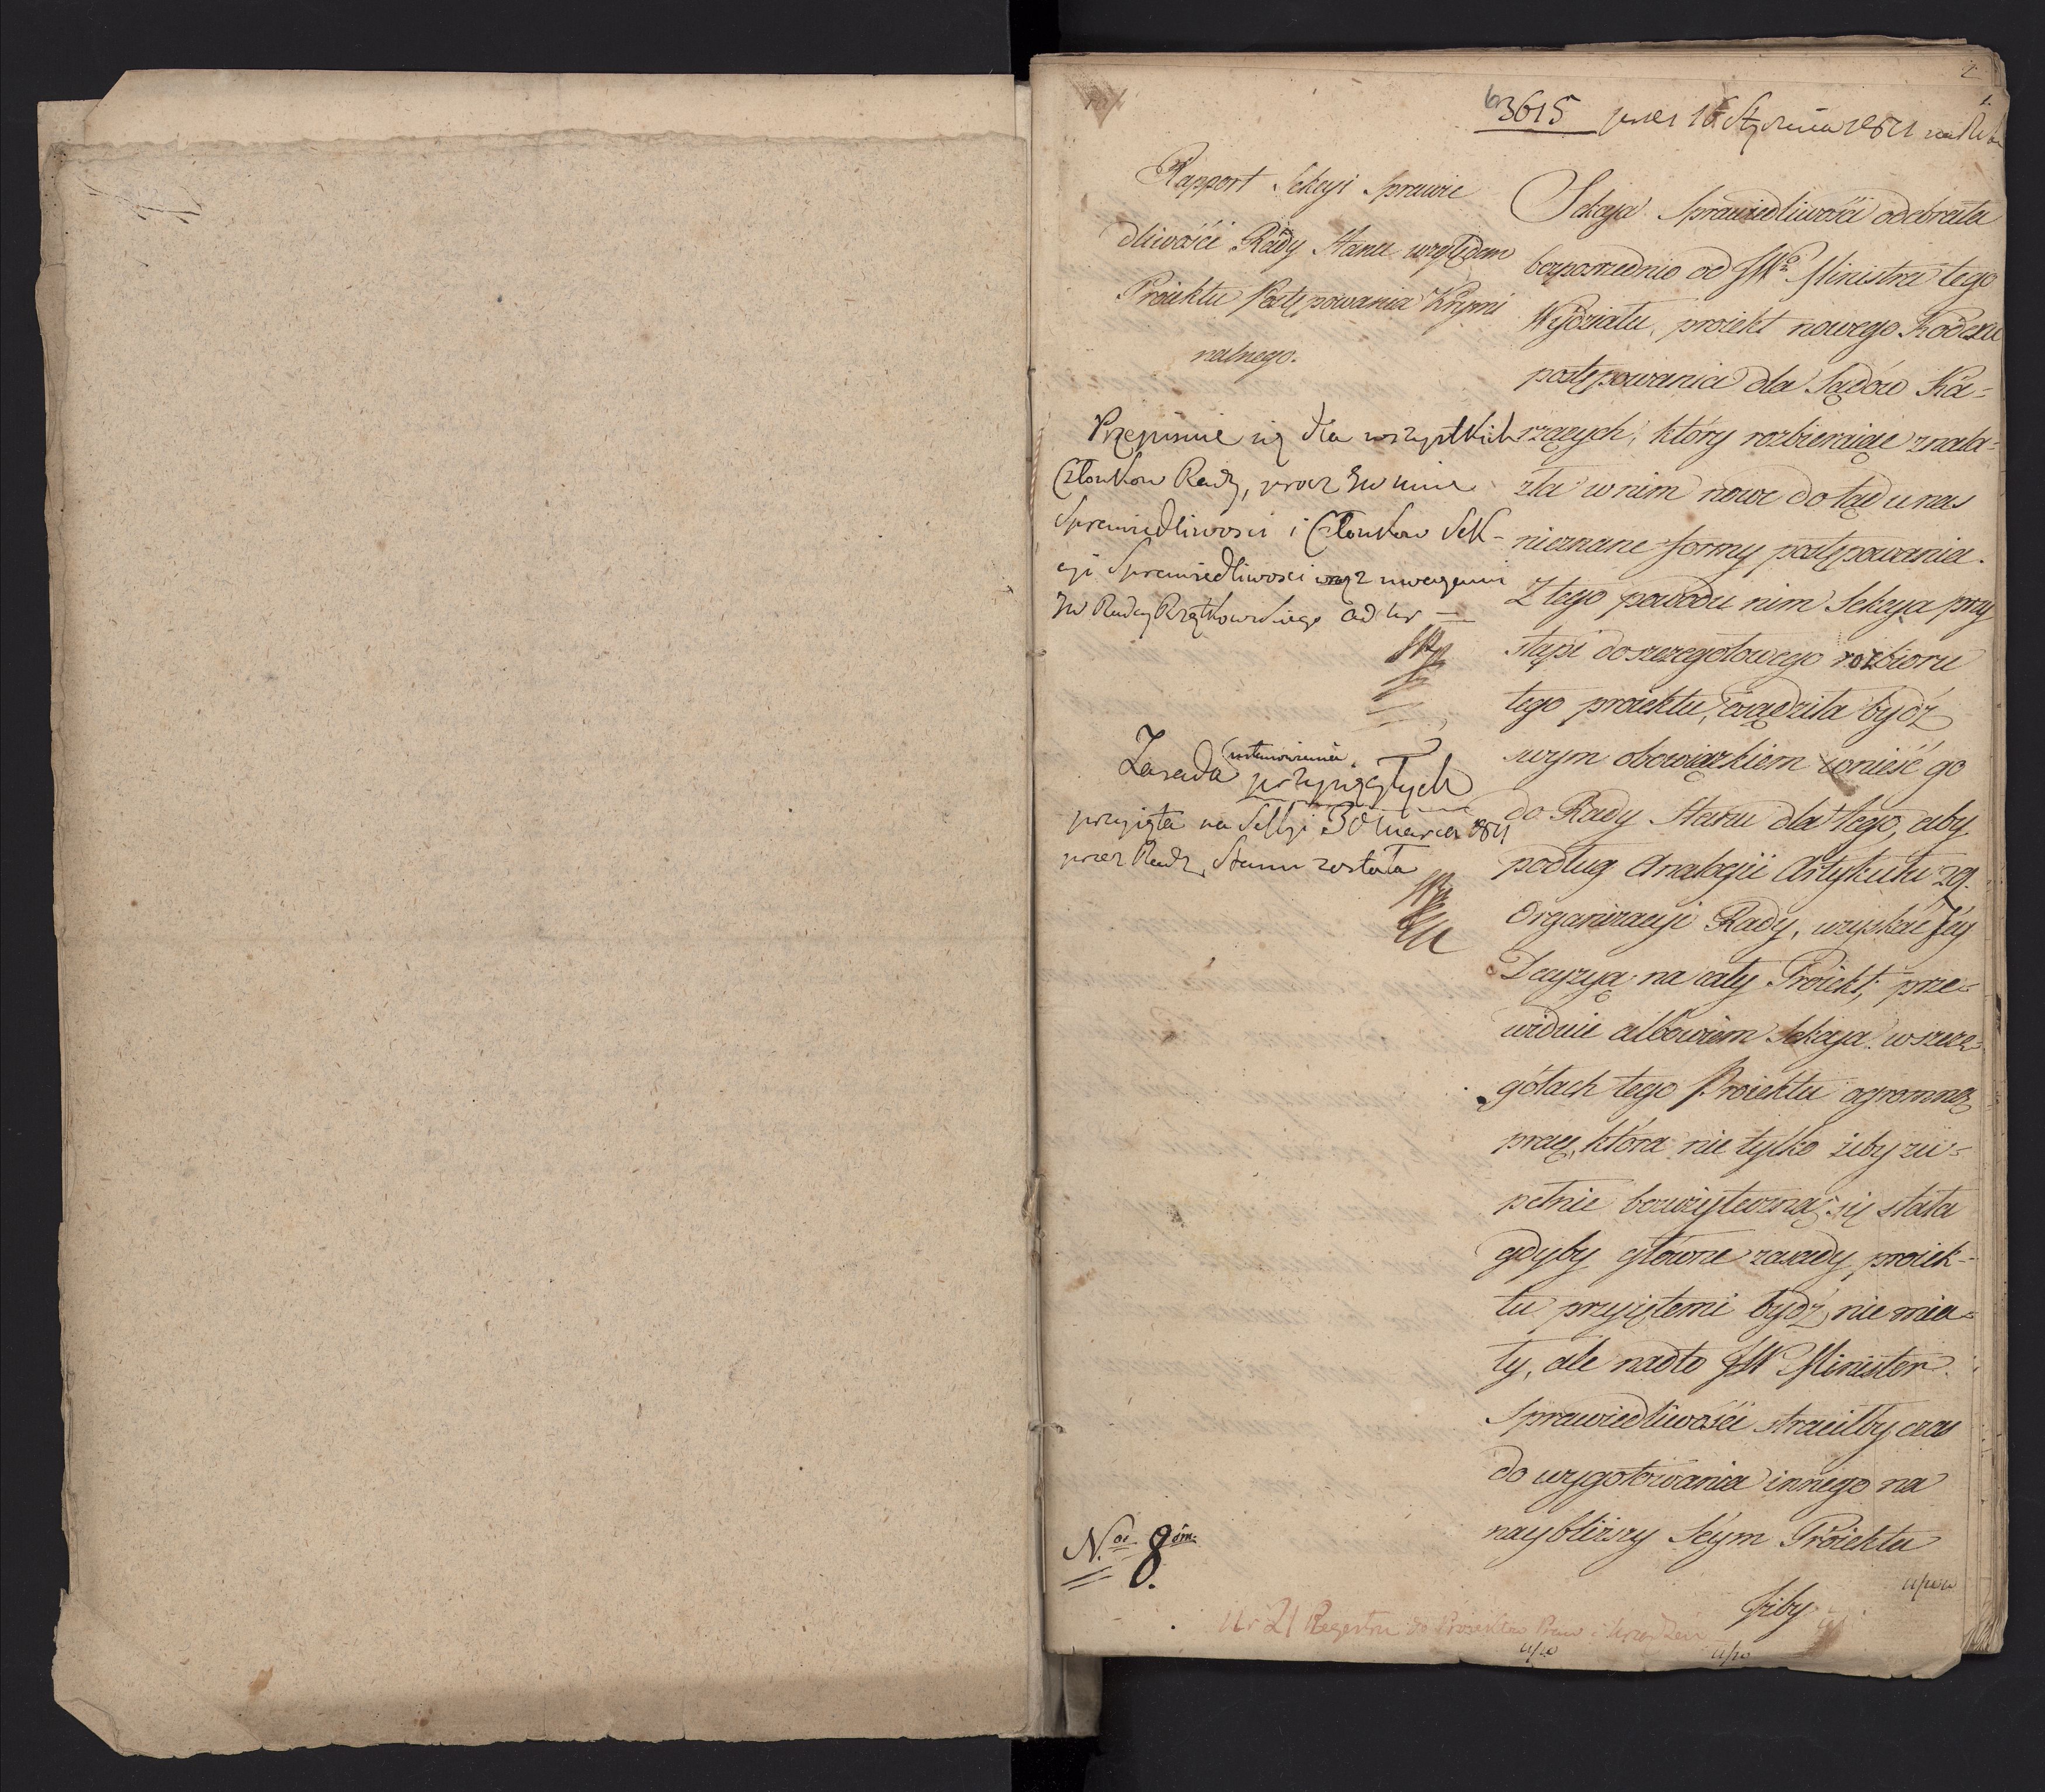 1.
3615 pres 16 Stycznia 1821
Rapport Sekcyi Sprawie
dliwości Rády Stanu względem
Proiektu Postępowania Krymi
nalnego.
Przepisuie się dla wszystkich
Członkow Rady, oraz
Sprawiedliwosci i Członkow Sek-
cyi Sprawiedliwosci wraz z uwagami
JW Radcy
Zasada ustanowienia
przysięgłych
przyięta na Sessyi 30 Marca 1821
przez Radę Stanu została
Nº 8
Sekcya Sprawiedliwości odebrała
bezpośrednio od JWº Ministra tego
Wydziału, proiekt nowego Kodexu
postępowania dla Sądów Ká-
rzących, który rozbieraiąc znala-
zła w nim nowe dotąd u nas
nieznane formy postępowania.
Z tego powodu nim Sekcya przy
stąpi do szczegółowego rozbioru
tego proiektu, osądziła bydź
swym obowiązkiem wnieść go
do Rady Stanu dla tego, aby
podług Analogii Artykułu 29.
Organizacyi Rady, uzyskać Jéy
Decyzyą na cały Proiekt, prze-
widuie albowiem Sekcya w szcze-
gółach tego Proiektu ogromną
pracę, która nie tylko żeby zu-
pełnie bezużyteczną się stała
gdyby główne zasady proiek-
tu przyiętemi bydź nie mia-
ły, ale nadto JW Minister
Sprawiedliwości straciłby czas
do wygotowania innego na
nayblizszy Séym Proiektu
Żeby
Nr 21 Regestru do Proiektow Praw i Urządzeń